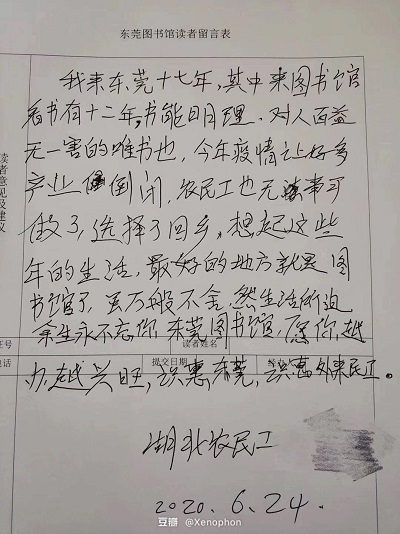 东莞图书馆读者留言表
我来东莞十七年，其中来图书馆
看书有十二年，书能明理，对人百益
无一害的唯书也，今年疫情让好多
产业倒闭，农民工也无事可
做了，选择了回乡，想起这些
年的生活，最好的地方就是图
书馆了，虽万般不舍，然生活所迫
余生永不忘你，东莞图书馆，愿你越
办越兴旺，识惠东莞，识惠外来民工。
湖北农民工
2020.6.24.
读者意见及建议
证号
读者姓名
电话
提交日期
豆瓣 @Xenophon